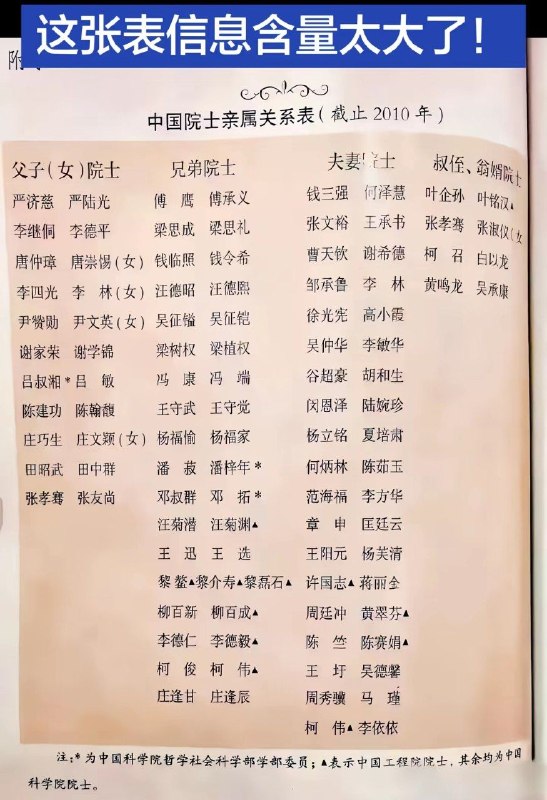 这张表信息含量太大了！
附
中国院士亲属关系表(截止2010年)
父子(女)院士 兄弟院士 夫妻院士 叔侄、翁婿院士
严济慈 严陆光 傅鹰 傅承义 钱三强 何泽慧 叶企孙 叶铭汉▲
李继侗 李德平 梁思成 梁思礼 张文裕 王承书 张孝骞 张淑仪(女
唐仲璋 唐崇惕(女) 钱临照 钱令希 曹天钦 谢希德 柯召 白以龙
李四光 李林(女) 汪德昭 汪德熙 邹承鲁 李林 黄鸣龙 吴承康
尹赞勋 尹文英(女) 吴征镒 吴征铠 徐光宪 高小霞
谢家荣 谢学锦 梁树权 梁植权 吴仲华 李敏华
吕叔湘*吕敏 冯康 冯端 谷超豪 胡和生
陈建功 陈翰馥 王守武 王守觉 闵恩泽 陆婉珍
庄巧生 庄文颖(女) 杨福愉 杨福家 杨立铭 夏培肃
田昭武 田中群 潘菽 潘梓年* 何炳林 陈茹玉
张孝骞 张友尚 邓叔群 邓拓* 范海福 李方华
汪菊潜 汪菊渊▲ 章申 匡廷云
王迅 王选 王阳元 杨芙清
黎鳌▲黎介寿▲黎磊石▲ 许国志▲蒋丽金
柳百新 柳百成▲ 周廷冲 黄翠芬▲
李德仁 李德毅▲ 陈竺 陈赛娟▲
柯俊 柯伟▲ 王圩 吴德馨
庄逢甘 庄逢辰 周秀骥 马瑾
柯伟▲李依依
注:*为中国科学院哲学社会科学部学部委员;▲表示中国工程院院士,其余均为中国
科学院院士。